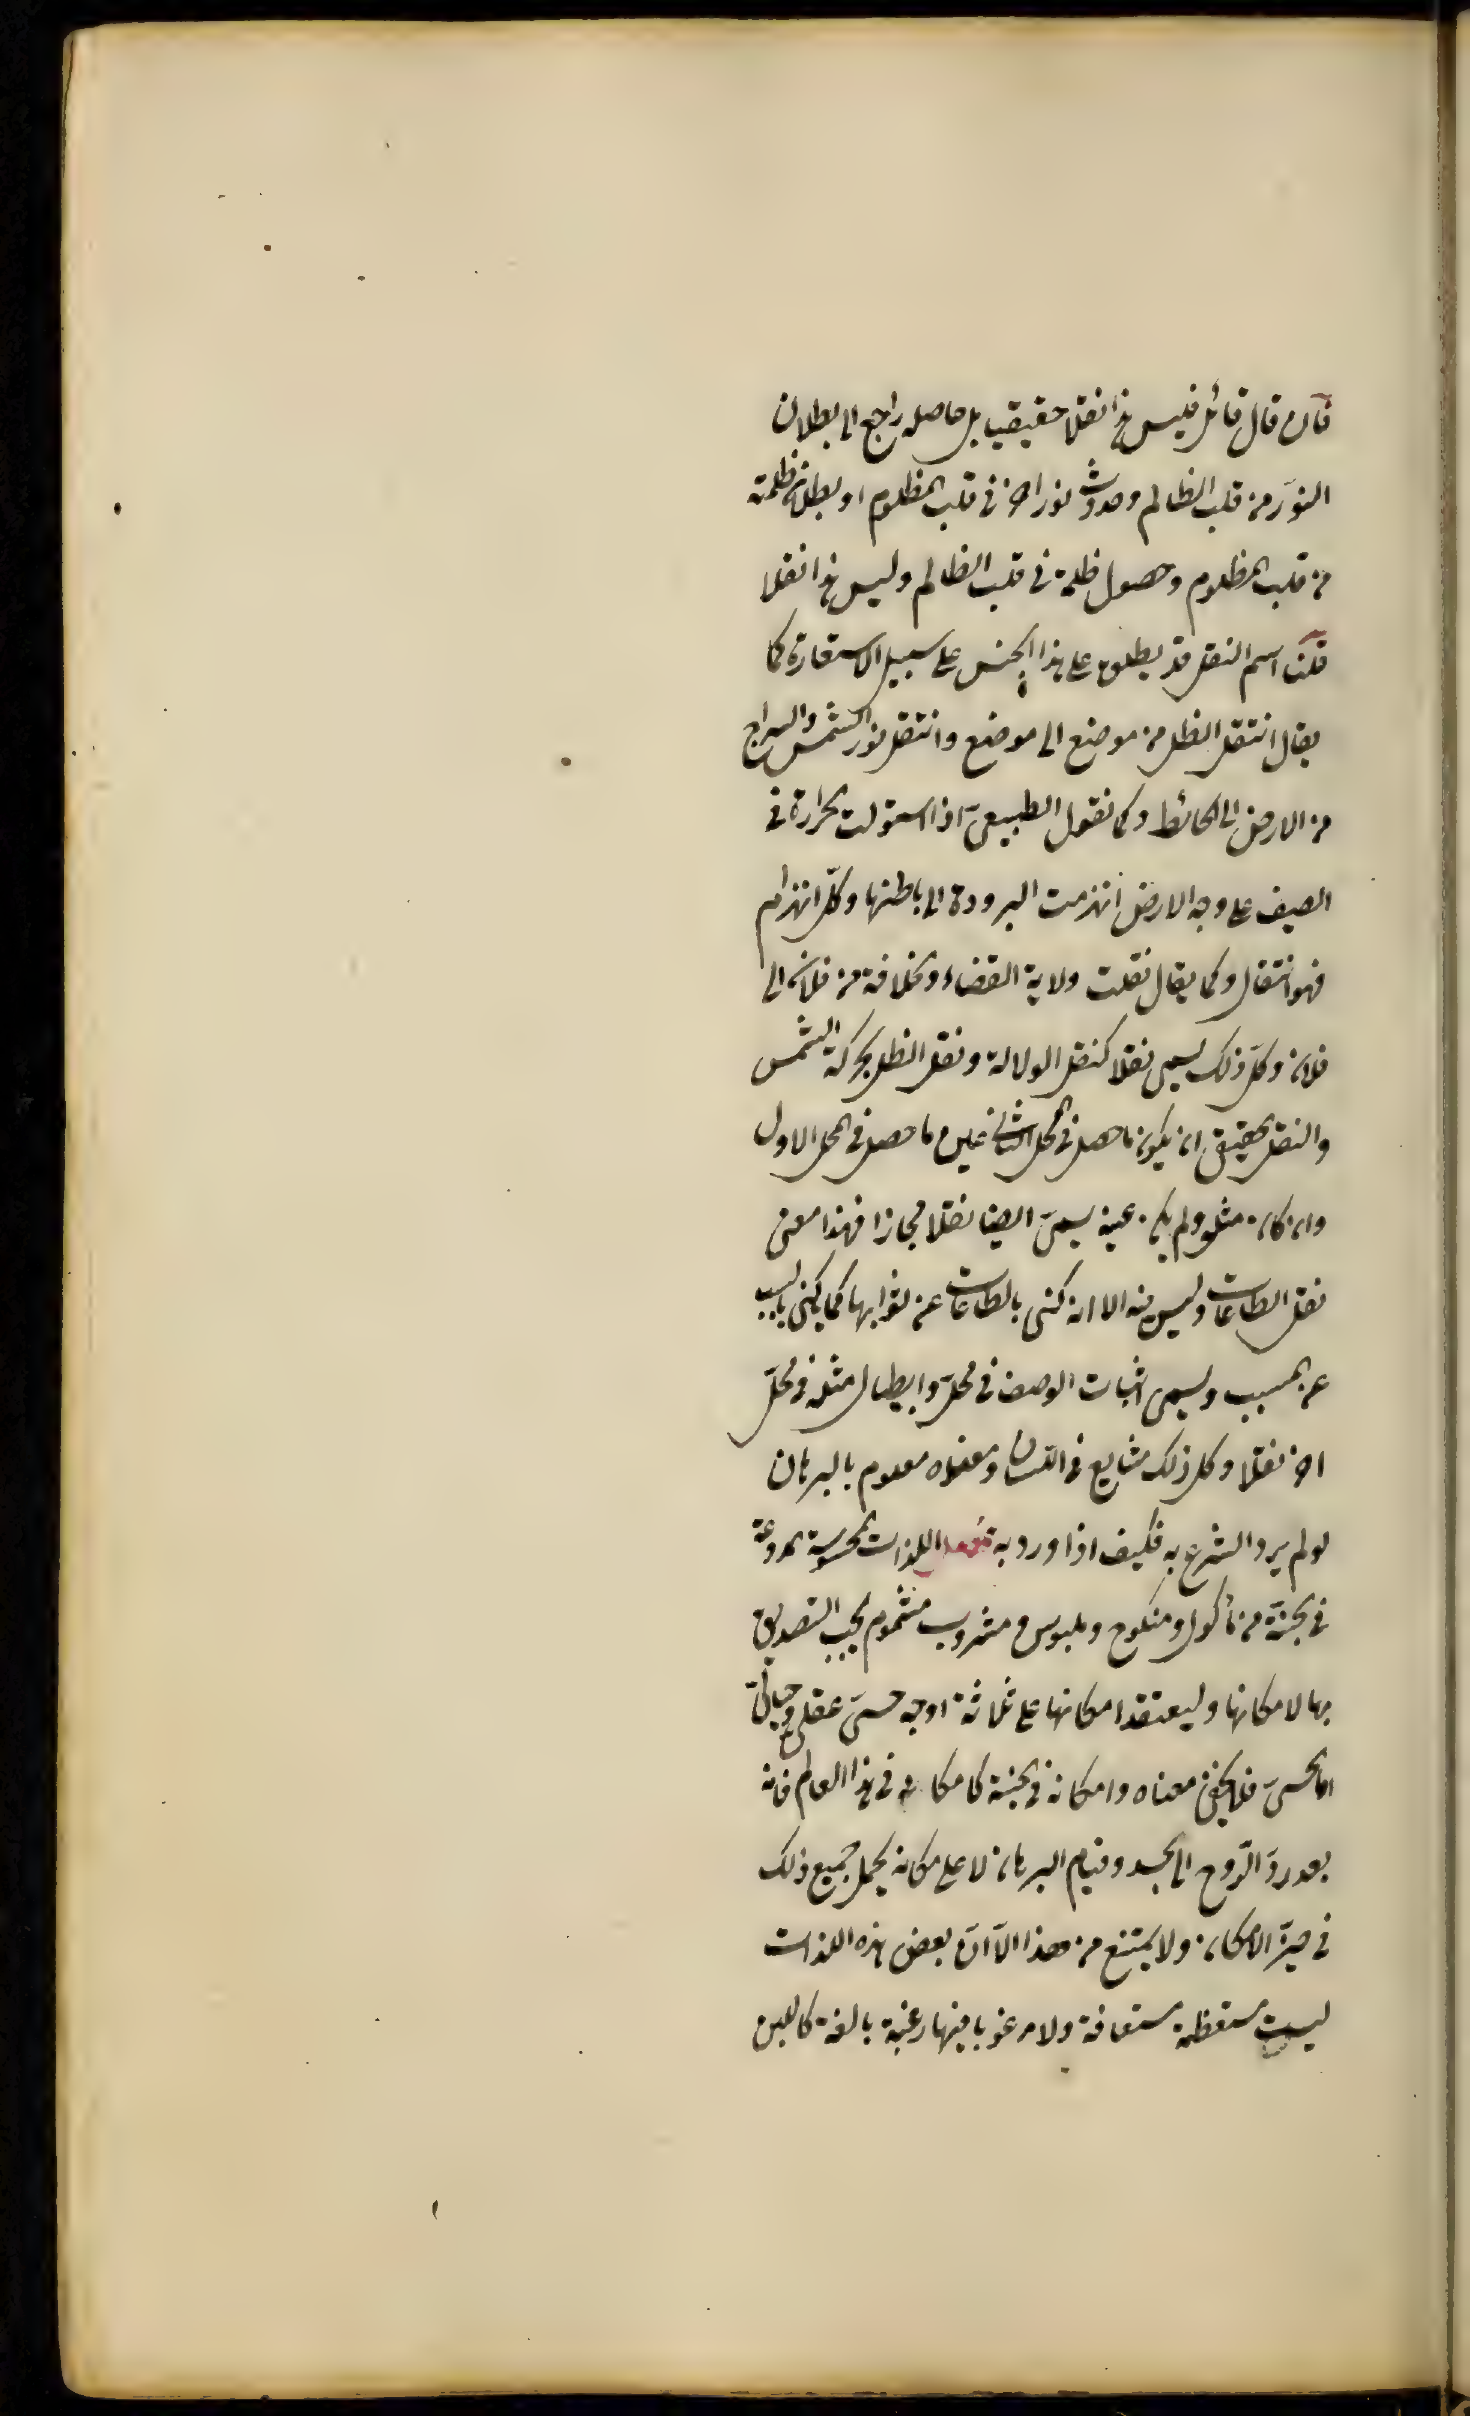 فان قال قائل فليس هذا نقلا حقيقيا بل حاصله راجع الى بطلان
النور من قلب الظالم وحدوث نور اخر فى قلب المظلوم او بطلان ظلمته
من قلب المظلوم وحصول ظلمة فى قلب الظالم وليس هذا نقلا
قلنا اسم النقل قد يطلق على هذا الجنس على سبيل الاستعارة كما
يقال انتقل الظل من موضع الى موضع وانتقل نور الشمس والسراج
من الارض الى الحائط وكما نقول الطبيعى اذا استولت الحرارة فى
الصيف على وجه الارض انهزمت البرودة الى باطنها وكل انهزام
فهو انتقال وكما يقال نقلت ولاية القضاء والخلافة من فلان الى
فلان وكل ذلك يسمى نقلا كنقل الولالة ونقل الظل بحركة الشمس
والنقل الحقيقى ان يكون ما حصل فى المحل الثانى عين ما حصل فى المحل الاول
وان كان مثله ولم يكن عينه يسمى ايضا نقلا مجازا فهذا معنى
نقل الطاعات وليس فيه الا انه كنى بالطاعات عن ثوابها كما يكنى بالسبب
عن المسبب ويسمى اثبات الوصف فى محل وابطال مثله فى محل
اخر نقلا وكل ذلك شايع فى اللسان ومعناه معلوم بالبرهان
لو لم يرد الشرع به فكيف اذا ورد به اللذات المحسوسة الموعودة
فى الجنة من مأكول ومنكوح وملبوس ومشروب مشموم يجب التصديق
بها لامكانها وليعتقد امكانها على ثلاثة اوجه حسى عقلى وخيالى
اما الحسى فلا يخفى معناه وامكانه فى الجنة كامكانه فى هذا العالم فانه
بعد رد الروح الى الجسد وقيام البرهان لا على مكانه يحمل جميع ذلك
فى حيز الامكان ولا يمتنع من هذا الا ان بعض هذه اللذات
ليست مستعظمة مستعافة ولا مرغوبا فيها رغبة بالغة كاللبن